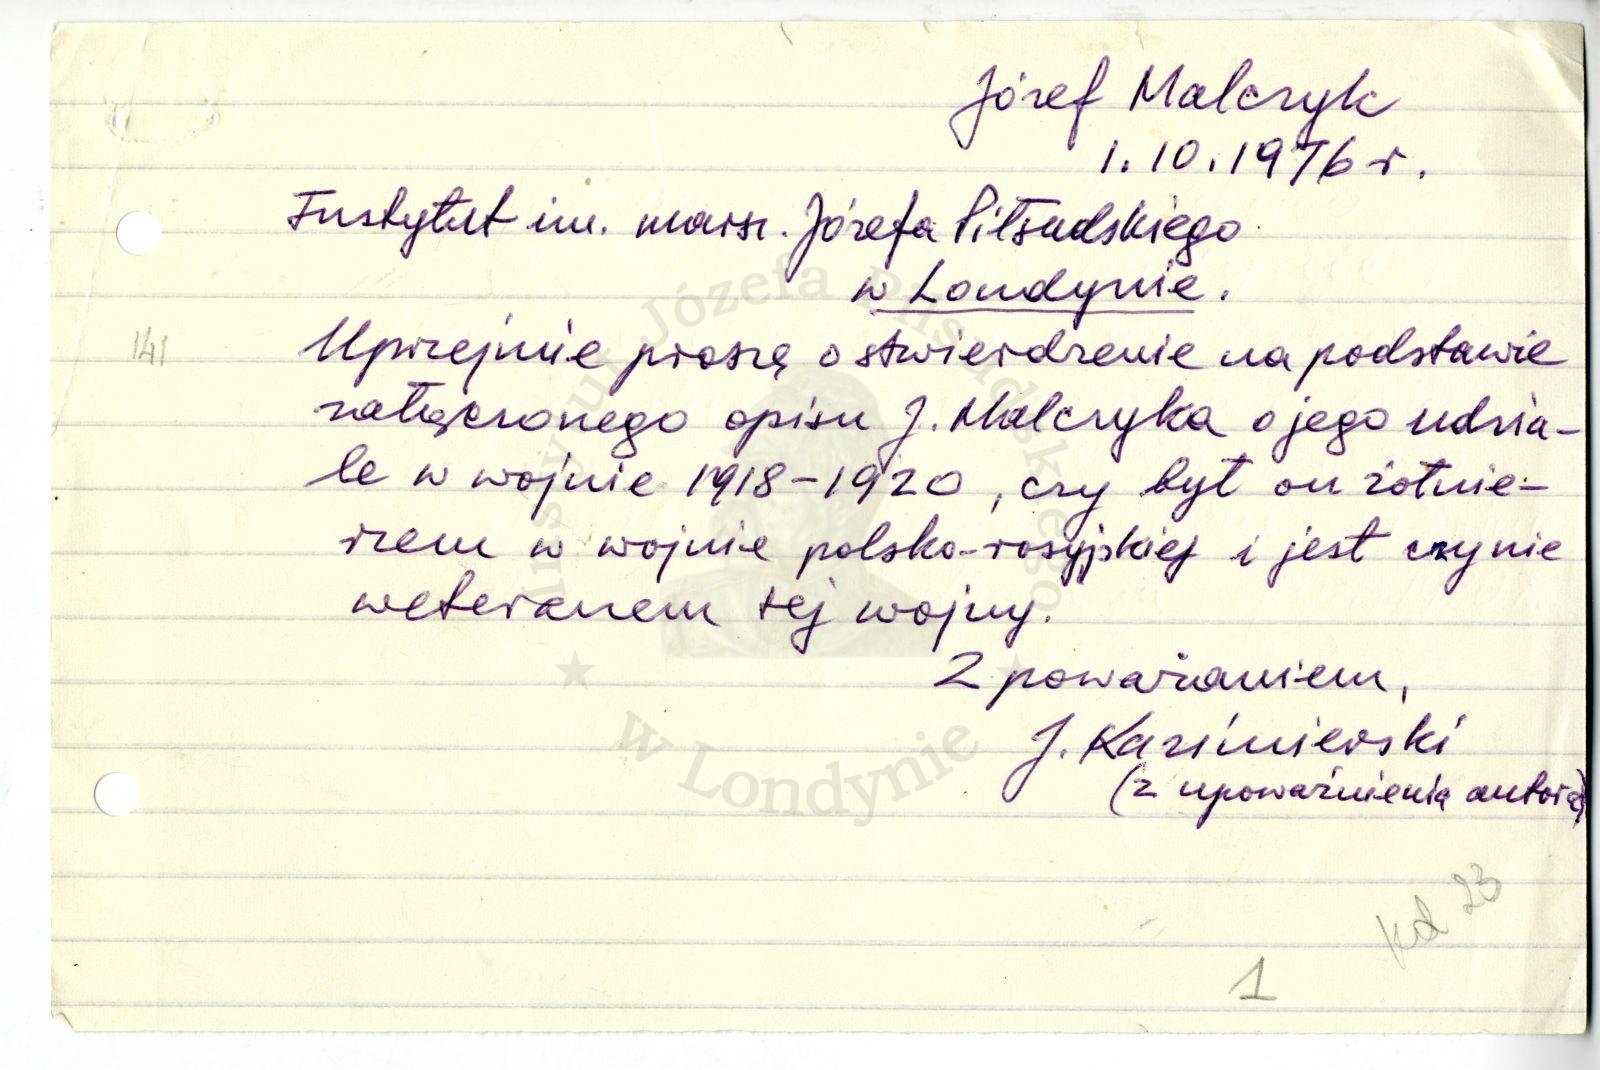 Józef Malczyk
1.10.1976 r.
Instytut im. marsz. Józefa Piłsudskiego
w Londynie.
141
Uprzejmie proszę o stwierdzenie na podstawie
załączonego opisu J. Malczyka o jego udzia-
le w wojnie 1918-1920, czy był on żołnie-
rzem w wojnie polsko-rosyjskiej i jest czy nie
weteranem tej wojny.
Z poważaniem,
J. Kazimierski
(z upoważnienia autora)
kol 23
1
Instytut Józefa Piłsudskiego
w Londynie